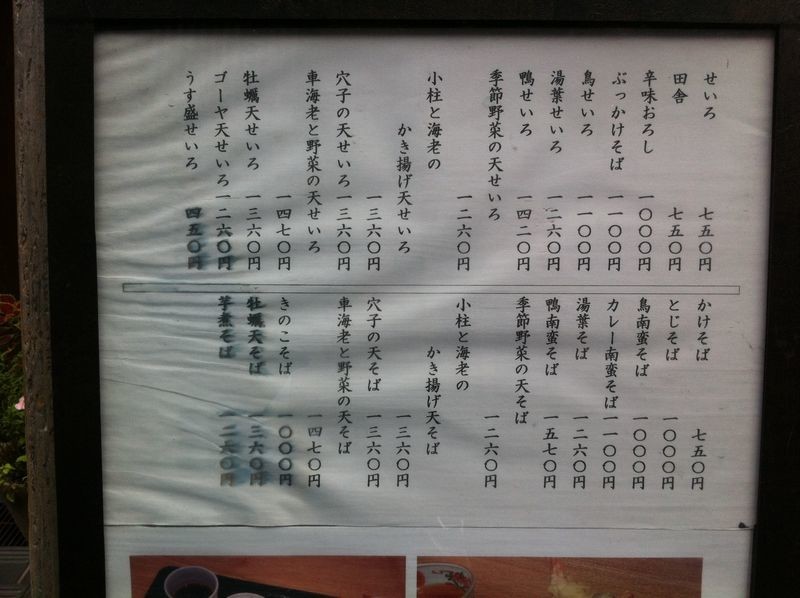 せいろ 七五〇円
田舎 七五〇円
辛味おろし 一〇〇〇円
ぶっかけそば 一一〇〇円
鳥せいろ 一一〇〇円
湯葉せいろ 一二六〇円
鴨せいろ 一四二〇円
季節野菜の天せいろ
一二六〇円
小柱と海老の
かき揚げ天せいろ
一三六〇円
穴子の天せいろ 一三六〇円
車海老と野菜の天せいろ
一四七〇円
牡蠣天せいろ 一三六〇円
ゴーヤ天せいろ 一二六〇円
うす盛せいろ 四五〇円
かけそば 七五〇円
とじそば 一〇〇〇円
鳥南蛮そば 一〇〇〇円
カレー南蛮そば 一一〇〇円
湯葉そば 一二六〇円
鴨南蛮そば 一五七〇円
季節野菜の天そば
一二六〇円
小柱と海老の
かき揚げ天そば
一三六〇円
穴子の天そば 一三六〇円
車海老と野菜の天そば
一四七〇円
きのこそば 一〇〇〇円
牡蠣天そば 一三六〇円
芋煮そば 一二六〇円